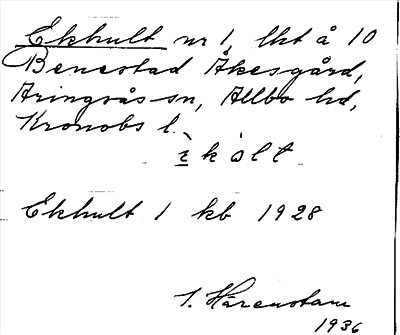 Ekhult nr 1, lht å 10
Benestad Åkesgård,
Aringsås sn, Allbo hd,
Kronobs l.
ὲkòlt
Ekhult 1 kb 1928
I. Härenstam
1936